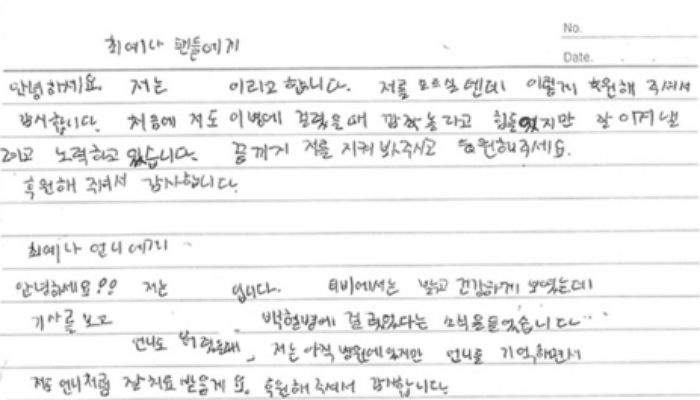 No.
최예나 팬들에게
Date.
안녕하세요. 저는 이라고 합니다. 저를 모르실 텐데 이렇게 후원해 주셔서
감사합니다. 처음에 저도 이병에 걸렸을때 깜짝 놀라고 힘들었지만 잘 이겨낼
려고 노력하고 있습니다. 끝까지 저를 지켜 봐주시고 후원해주세요.
후원해 주셔서 감사합니다.
최예나 언니에게
안녕하세요?? 저는 입니다. 티비에서는 밝고 건강하게 보였는데
기사를 보고 백혈병에 걸렸었다는 소식을들었습니다..
언니도 걸렸을때 저는 아직 병원에 있지만 언니를 기억하면서
저도 언니처럼 잘 치료 받을게요. 후원해 주셔서 감사합니다.